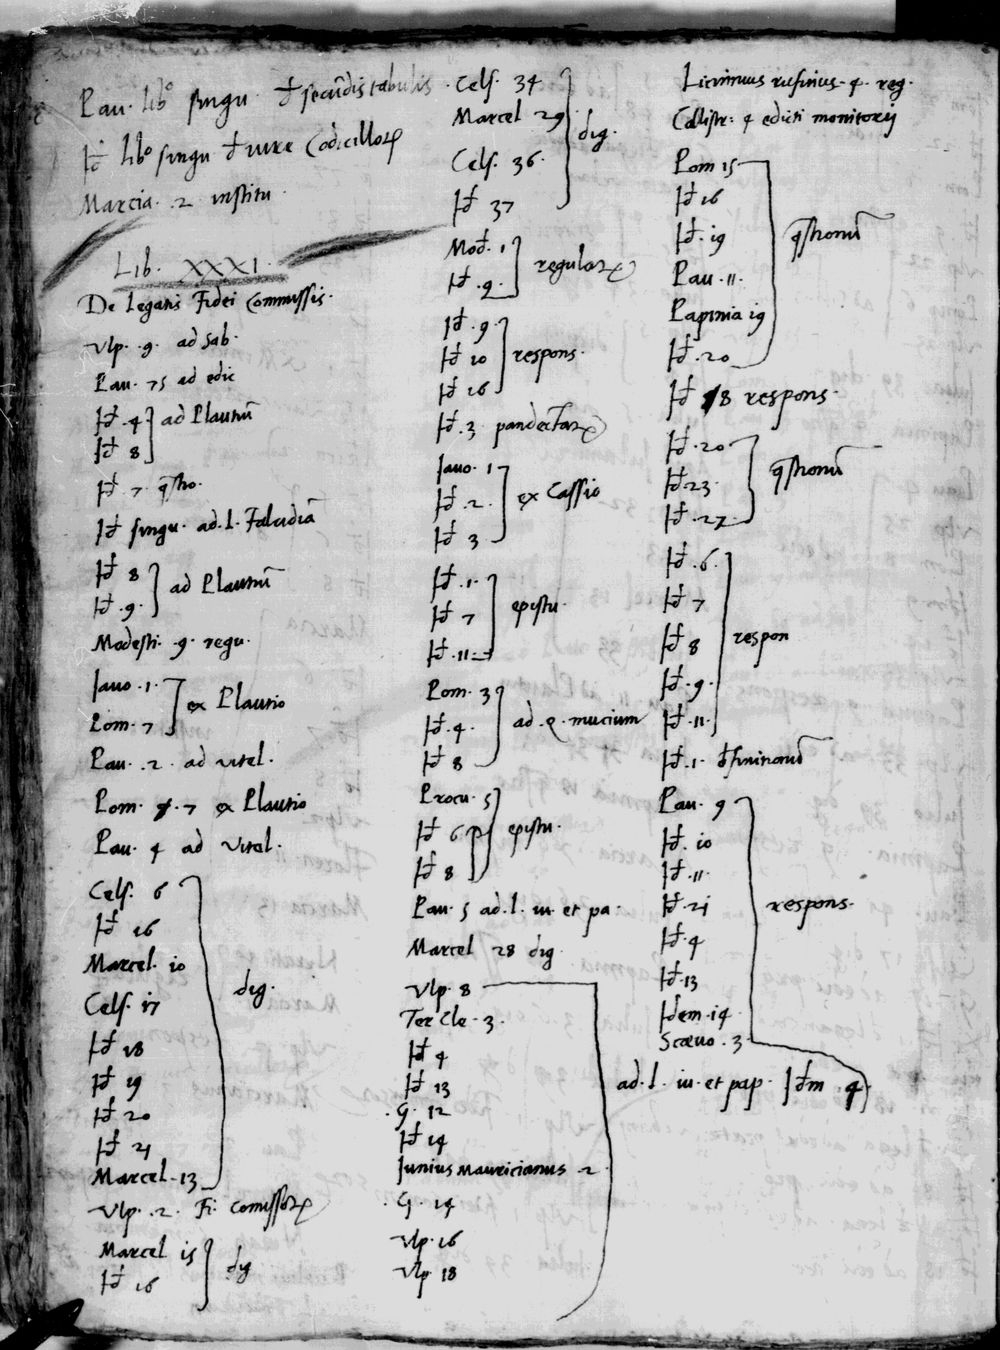 Pau. libº singu đ secūdis tabulis
Id libº singu đ iure Codicilloꝝ
Marcia. 2 institu.
Lib. XXXI.
De Legatis Fidei Commissis.
Vlp. 9. ad Sab.
Pau. 75 ad edic
Id. 4. ad Plautiū
Id 8
Id. 7. q̄stio.
Id singu. ad. l. Falcidiā
Id 8 ad Plautiū
Id. 9.
Modesti. 9. regu.
Iavo. 1. ex Plautio
Pom. 7
Pau. 2. ad vitel.
Pom. 7 ex Plautio
Pau. 4 ad vitel.
Cels. 6
Id 16
Marcel. 10
Cels. 17 dig.
Id 18
Id 19
Id 20
Id 21
Marcel. 13
Vlp. 2. Fi. comissoꝝ
Marcel 15 dig
Id 16
Cels. 34
Marcel 29 dig.
Cels. 36.
Id 37
Mod. 1 regulaꝝ
Id. 9.
Id. 9
Id 10 respons.
Id 16
Id. 3 pandectaꝝ
Iavo. 1
Id. 2. ex Cassio
Id 3
Id. 1.
Id 7 epistu.
Id. 11
Pom. 3
Id. 4. ad. q. mucium
Id 8
Procu. 5
Id 6 epistu.
Id 8
Pau. 5 ad. l. iu. et pa.
Marcel 28 dig
Vlp. 8
Ter Cle. 3.
Id 4
Id 13
G. 12
Id 14
Iunius Mauricianus 2.
G. 14
Vlp. 16
Vlp 18
ad. l. iu. et pap.
Licinnius rufinius. 4. reg.
Callistr: 4 edicti monitorij
Pom 15
Id 16
Id. 19 q̄stionū
Pau. 11.
Papinia 19
Id. 20
Id 8 respons.
Id. 20
Id 23 q̄stionū
Id. 27
Id. 6.
Id 7
Id 8 respon
Id. 9.
Id. 11.
Id. 1. đfinitionū
Pau. 9
Id. 10
Id. 11.
Id. 21 respons.
Id. 4
Id. 13
Idem. 14
Scævo. 3
Idm. 4